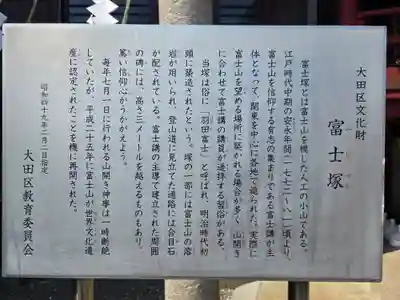 大田区文化財
富士塚
富士塚とは富士山を模した人工の小山である。
江戸時代中期の安永年間（一七七二〜八一）頃より、
富士山を信仰する有志の集まりである富士講が主
体となって、関東を中心に各地で造られた。実際に
富士山を望める場所に築かれる場合が多く、山開き
に合わせて富士講の講員が遥拝する習俗がある。
当塚は俗に「羽田富士」と呼ばれ、明治時代初
頭に築造されたという。塚の一部には富士山の溶
岩が用いられ、登山道に見立てた通路には合目石
が配されている。富士講の主導で建立された周囲
の碑には、高さ三メートルを越えるものもあり、
篤い信仰心がうかがえよう。
毎年七月一日に行われる山開き神事は一時断絶
していたが、平成二十五年に富士山が世界文化遺
産に認定されたことを機に再開された。
昭和四十九年二月二日指定
大田区教育委員会